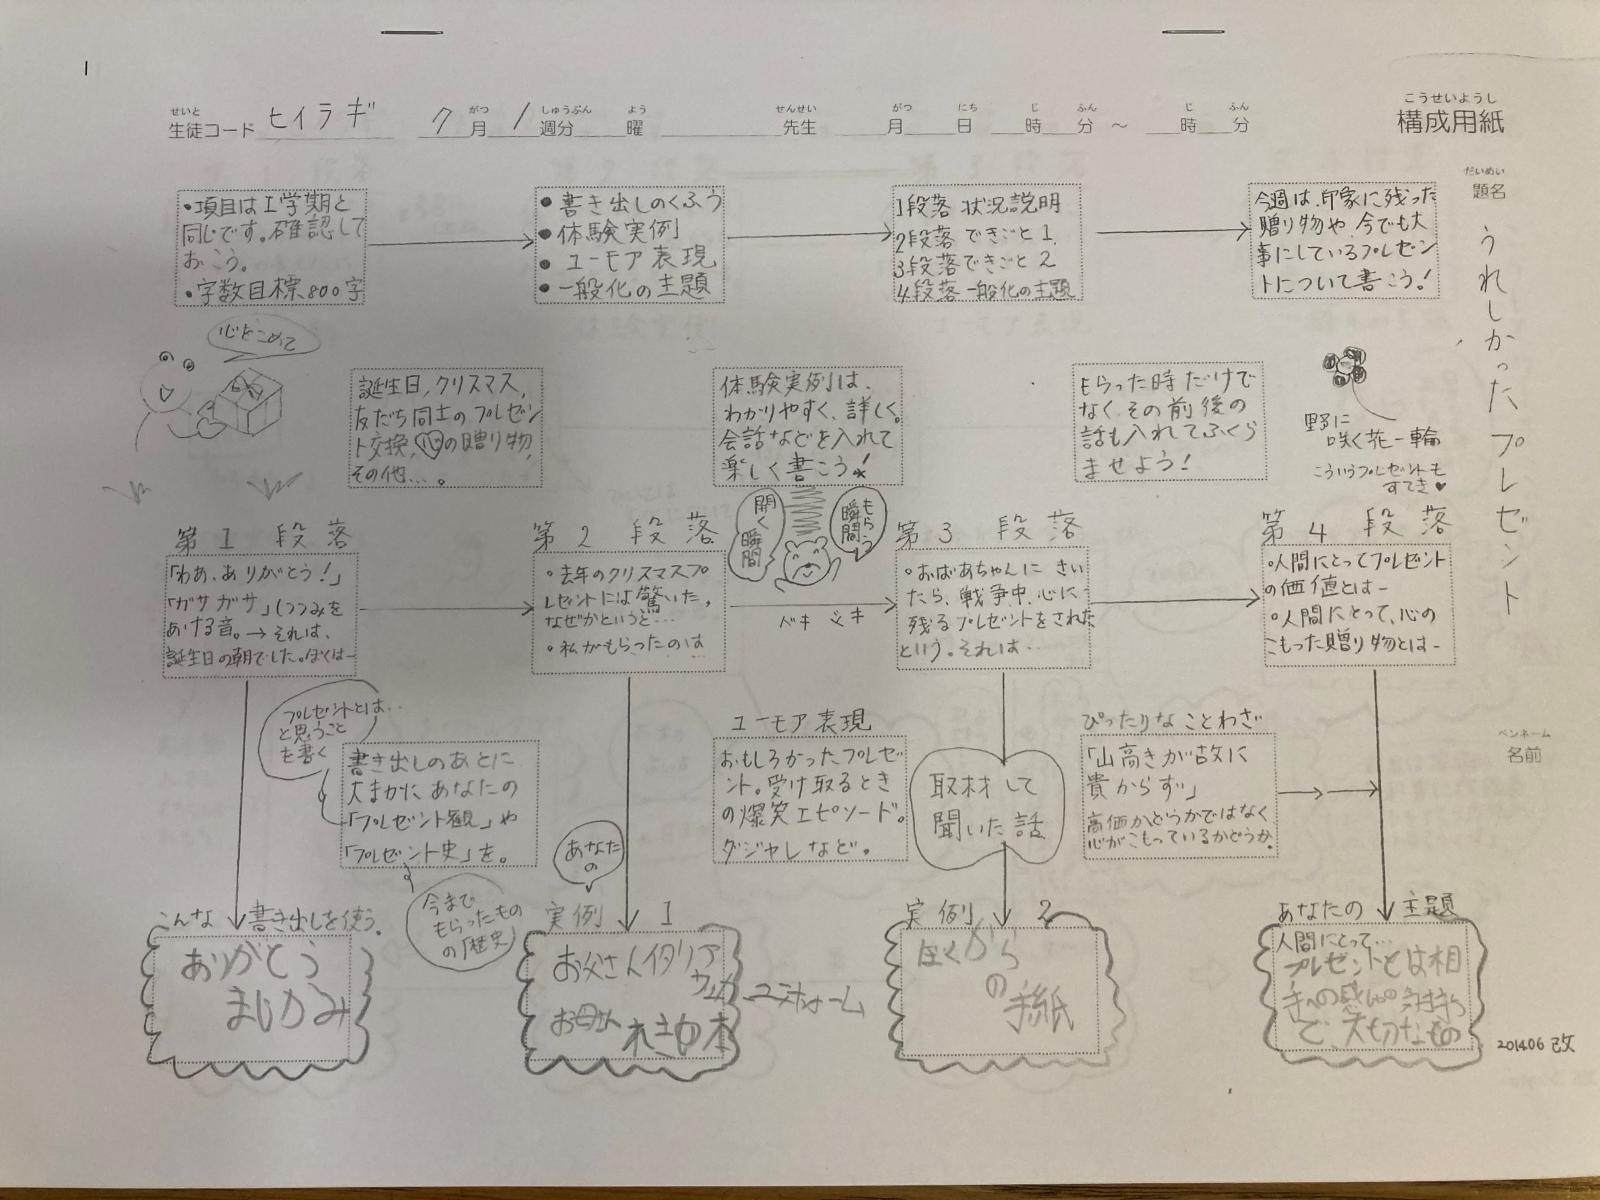 1
せいと がつ しゅうぶん よう せんせい がつ にち じ ふん じ ふん
生徒コード ヒイラギ 7月 1週分 曜 先生 月 日 時 分 〜 時 分
こうせいようし
構成用紙
だいめい
題名
うれしかったプレゼント
ペンネーム
名前
・項目はI学期と
同じです。確認して
おこう。
・字数目標800字
● 書き出しのくふう
● 体験実例
● ユーモア表現
● 一般化の主題
1段落 状況説明
2段落 できごと1.
3段落 できごと2
4段落 一般化の主題
今週は、印象に残った
贈り物や、今でも大
事にしているプレゼン
トについて書こう!
心をこめて
誕生日,クリスマス,
友だち同士のプレゼン
ト交換,心の贈り物,
その他…。
体験実例は、
わかりやすく、詳しく。
会話などを入れて
楽しく書こう!
もらった時だけで
なく、その前後の
話も入れてふくら
ませよう!
野に
咲く花一輪
こういうプレゼントも
すてき♥
第1段落
「わあ、ありがとう!」
「ガサガサ」(つつみを
あける音。→それは、
誕生日の朝でした。ぼくは―
第2段落
・去年のクリスマスプ
レゼントには驚いた,
なぜかというと…
・私がもらったのは
開く瞬間
もらう
瞬間
バキ
第3段落
・おばあちゃんに きい
たら、戦争中、心に
残るプレゼントをされた
という。それは…
第4段落
・人間にとってプレゼント
の価値とは―
・人間にとって、心の
こもった贈り物とは―
プレゼントとは…
と思うこと
を書く
書き出しのあとに
大まかに あなたの
「プレゼント観」や
「プレゼント史」を。
今まで
もらったもの
の「歴史」
あなた
の
ユーモア表現
おもしろかったプレゼ
ント。受け取るとき
の爆笑エピソード。
ダジャレなど。
取材して
聞いた話
ぴったりなことわざ
「山高きが故に
貴からず」
高価かどうかではなく
心がこもっているかどうか.
こんな 書き出しを使う.
ありがとう
まじかみ
実例 1
お父さんイタリア
お母さん れきしの本
ユニホーム
実例 2
ぼくから
の
手紙
あなたの 主題
人間にとって…
プレゼントとは相
手への感しゃの気持ち
で、大切なもの
201406改